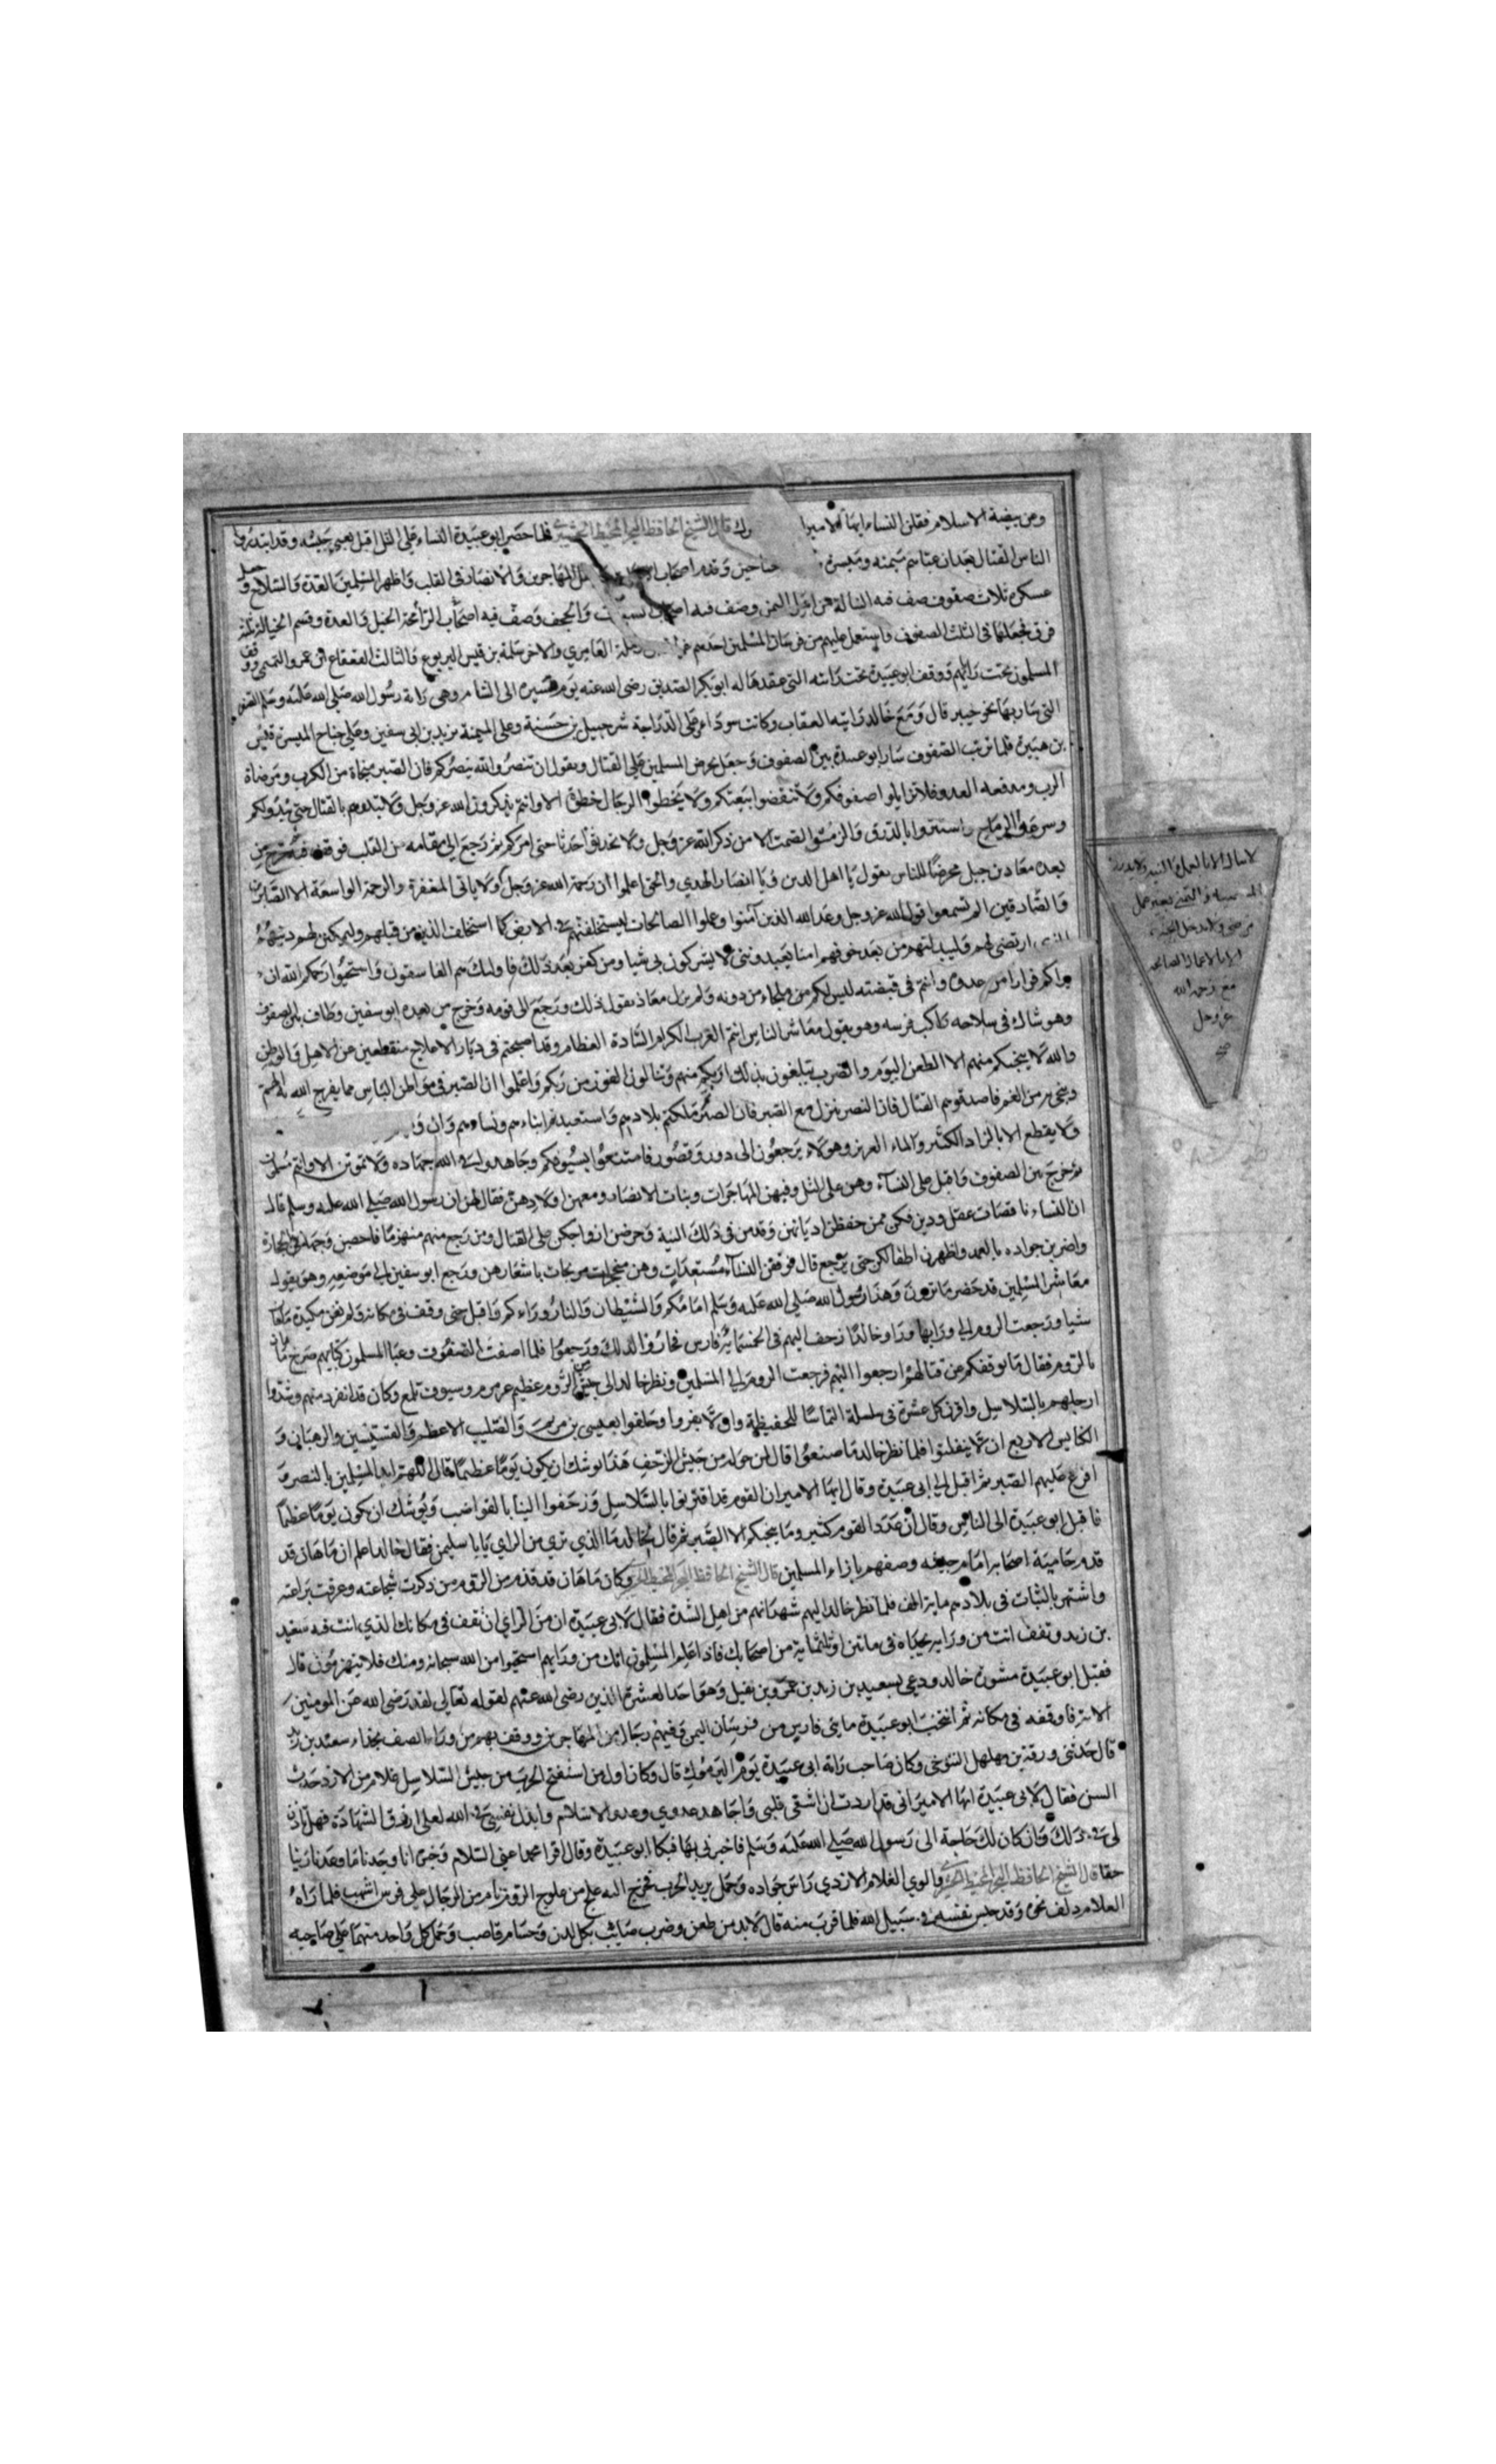 وعن بيضة الاسلام فقلن النساء ايها الامير قال الشيخ الحافظ فلما حضر ابو عبيدة النساء على التل اقبل يعبي جيشه وقد ابتدروا
الناس للقتال بعد ان عباهم ميمنه وميسرة المهاجرين والانصار في القلب واظهر المسلمين العدة والسلاح
عسكره ثلاث صفوف صف فيه النبالة من اهل اليمن وصف فيه اصحاب والحجف وصف فيه اصحاب الرماح الخيل والعدة وقسم الخيالة ثلاثة
فرق فجعلها في الثلث الصفوف فاستعمل عليهم من فرسان المسلمين احدهم العامري والاخر سلمة بن قيس اليربوع والثالث القعقاع ابن عمرو التميمي
المسلمون تحت راياتهم ووقف ابو عبيدة تحت رايته التي عقدها له ابو بكر الصديق رضي الله عنه يوم مسيره الى الشام وهي راية رسول الله صلى الله عليه وسلم
التي سار بها نحو خيبر قال ومع خالد رايته العقاب وكانت سودا على الدراجة شرحبيل بن حسنة وعلى الميمنة يزيد بن ابي سفين وعلى جناح الميسرة قيس
بن هبيرة فلما ترتب الصفوف سار ابو عبيدة بين الصفوف وجعل يحرض المسلمين على القتال ويقول ان تنصروا الله ينصركم فان الصبر منجاة من الكرب ومرضاة
الرب ومدفعه العدو فلا تزايلوا صفوفكم ولا تنقضوا ولا يخطوا الرجال خطوة الا وانتم تذكرون الله عز وجل ولا تبدوهم بالقتال حتى يبدوكم
الرماح واستتروا بالدرق والزموا الصمت الا من ذكر الله عز وجل ولا تحدثوا حدثا حتى امركم ثم رجع الى مقامه من القلب فوقف
بعده معاذ بن جبل محرضا للناس يقول يا اهل الدين ويا انصار الهدي والحق اعلموا ان رحمة الله عز وجل ولا ياتي المغفرة والرحمة الواسعة الا الصابرين
والصادقين الم تسمعوا قول الله عز وجل وعد الله الذين آمنوا وعملوا الصالحات ليستخلفنهم في الارض كما استخلف الذين من قبلهم وليمكنن لهم دينهم
ارتضى لهم وليبدلنهم من بعد خوفهم امنا يعبدونني لا يشركون بي شيا ومن كفر بعد ذلك فاولئك هم الفاسقون فاستحيوا رحمكم الله ان
يراكم فرارا من عدوه وانتم في قبضته ليس لكم من ملجاء من دونه ولم يزل معاذ يقول ذلك ورجع الى قومه وخرج من بعده ابو سفين وطاف بالصفوف
وهو شاك في سلاحه راكب فرسه وهو يقول معاشر الناس انتم العرب الكرام السادة العظام وقد اصبحتم في ديار الاعلاج منقطعين عن الاهل والوطن
والله لا ينجيكم منهم الا الطعن اليوم والضرب تبلغون بذلك اربكم منهم وتنالون الفوز من ربكم واعلموا ان الصبر في مواطن الباس مما يفرج الله به الهم
وينجي من الغم فاصدقوهم القتال فان النصر ينزل مع الصبر فان الصبر ملكتم بلادهم واستعبدتم ابناءهم ونساءهم وان
ولا يقطع الا بالزاد الكثير والماء الغزير وهولاء يرجعون الى دور وقصور فامتنعوا بسيوفكم وجاهدوا في الله جهاده ولا تموتن الا وانتم مسلمون
ثم خرج من الصفوف واقبل على النساء وهن على التل وفيهن المهاجرات وبنات الانصار ومعهن اولادهن فقال لهن ان رسول الله صلى الله عليه وسلم قال
ان النساء ناقصات عقل ودين فكن ممن حفظن اديانهن وقدمن في ذلك النية وحرضن ازواجكن على القتال ومن رجع منهم منهزما فاحصبن وجهه بالحجارة
واضربن جواده بالعمد واظهرن اطفالكن حتى يرجع قال فوقفن النساء مستعدات وهن مرتجزات باشعارهن ورجع ابو سفين الى موضعه وهو يقول
معاشر المسلمين قد حضر ما ترون وهذا رسول الله صلى الله عليه وسلم امامكم والشيطان والنار وراءكم واقبل حتى وقف في مكانه
شيا ورجعت الروم الى ورايها وراو خالدا زحف اليهم في الخمسماية فارس فحاروا لذلك ورجعوا فلما اصفت الصفوف وعبا المسلمون كتايبهم صرخ ماهان
بالروم فقال ما يوقفكم عن قتالهم ارجعوا اليهم فرجعت الروم الى المسلمين ونظر خالد الى جيش الروم عظيم عرمرم وسيوف تلمع وكان قد انفرد منهم وشدوا
ارجلهم بالسلاسل واقرن كل عشرة في سلسلة التماسا للحفيظة وان لا يفروا وحلفوا بعيسى بن مريم والصليب الاعظم والقسيسين والرهبان و
الكنايس الاربع ان لا ينفلتوا فلما نظر خالد ما صنعوا قال لمن حوله من جيش الزحف هذا يوشك ان يكون يوما عظيما فقال اللهم ايد المسلمين بالنصر و
افرغ عليهم الصبر ثم اقبل الى ابي عبيدة وقال ايها الامير ان القوم قد اقترنوا بالسلاسل وزحفوا الينا بالقواضب ويوشك ان يكون يوما عظيما
فاقبل ابو عبيدة الى الناس وقال ان عدد القوم كثير وما ينجيكم الا الصبر ثم قال لخالد ما الذي تري من الراي يابا سليمن فقال خالد اعلم ان ماهان قد
قدم حامية اصحابه امام جيشه وصفهم بازاء المسلمين قال الشيخ الحافظ وكان ماهان قد قدم من الروم من ذكرت شجاعته وعرفت براعته
واشتهر بالثبات في بلادهم ماية الف فلما نظر خالد اليهم شهد انهم من اهل الشدة فقال لابي عبيدة ان من الراي ان تقف في مكانك الذي انت فيه سعيد
بن زيد وتقف انت من ورايه بحياه في ماتين او ثلثماية من اصحابك فاذا علم المسلمون انك من ورايهم استحيوا من الله سبحانه ومنك فلا ينهزمون قال
فقبل ابو عبيدة مشورة خالد ودعى بسعيد بن زيد بن عمرو بن نفيل وهو احد العشرة الذين رضي الله عنهم لقوله تعالى لقد رضي الله عن المومنين
الاية فاوقفه في مكانه ثم انتخب ابو عبيدة مايتي فارس من فرسان اليمن وفيهم رجال من المهاجرين ووقف بهم من وراء الصف بحذاء سعيد بن زيد
قال حدثني ورقة بن مهلهل التنوخي وكان صاحب راية ابي عبيدة يوم اليرموك قال وكان اول من استفتح الحرب من جيش السلاسل غلام من الازد حدث
السن فقال لابي عبيدة ايها الامير اني قد اردت ان اشفي قلبي واجاهد عدوي وعدو الاسلام وابذل نفسي في الله لعلي ارزق الشهادة فهل تاذن
لي في ذلك فان كان لك حاجة الى رسول الله صلى الله عليه وسلم فاخبرني بها فبكا ابو عبيدة وقال اقرا محمدا عني السلام وخبره انا وجدنا ما وعدنا ربنا
حقا قال الشيخ الحافظ والوي الغلام الازدي راس جواده وحمل يريد الحرب فخرج اليه علج من علوج الروم من الرجال على فرس اشهب فلما راه
الغلام دلف نحوه وقد حبس نفسه في سبيل الله فلما قرب منه قال لا بد من طعن وضرب صايب بكل لدن وحسام قاضب وحمل كل واحد منهما على صاحبه